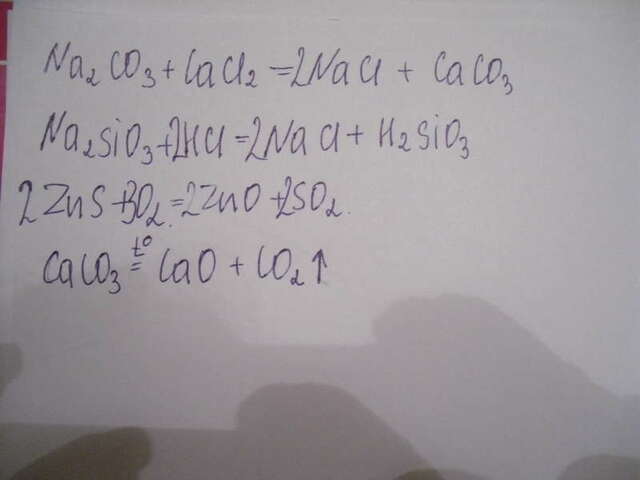 Na₂CO₃ + CaCl₂ = 2NaCl + CaCO₃
Na₂SiO₃ + 2HCl = 2NaCl + H₂SiO₃
2ZnS + 3O₂ = 2ZnO + 2SO₂.
CaCO₃ t° = CaO + CO₂ ↑